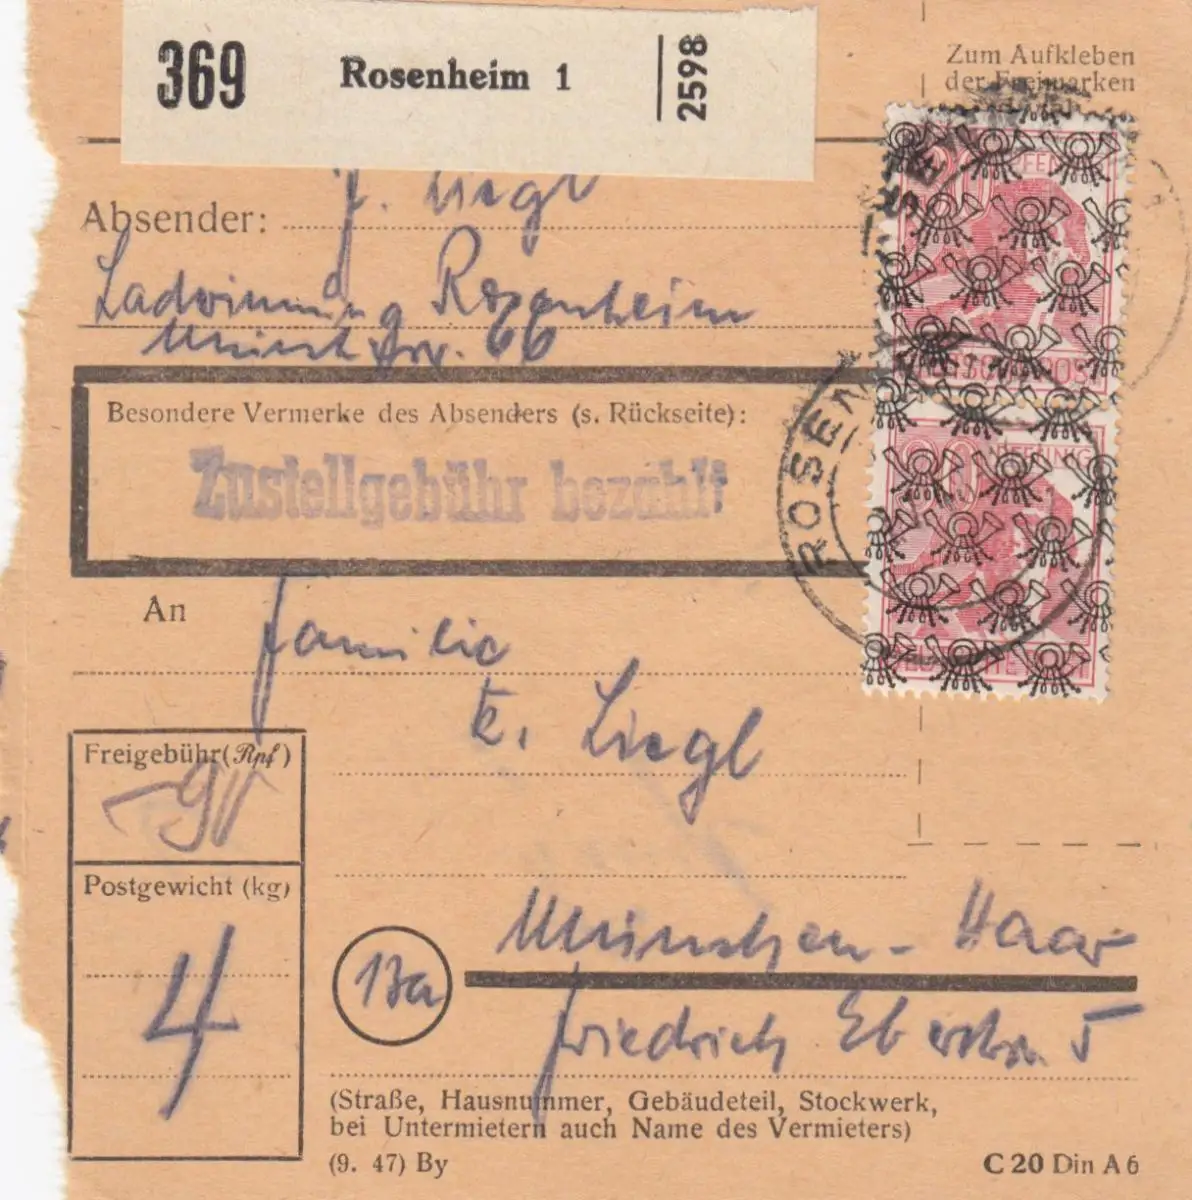 369 Rosenheim 1 2598
Zum Aufkleben
der Freimarken
Absender: J. Liegl
Rosenheim
66
Besondere Vermerke des Absenders (s. Rückseite):
Zustellgebühr bezahlt
ROSENHEIM
An Familie
Liegl
Freigebühr (Rpf)
90
Postgewicht (kg)
4
13a
München - Haar
Friedrich Ebertstr. 5
(Straße, Hausnummer, Gebäudeteil, Stockwerk,
bei Untermietern auch Name des Vermieters)
(9. 47) By
C 20 Din A 6